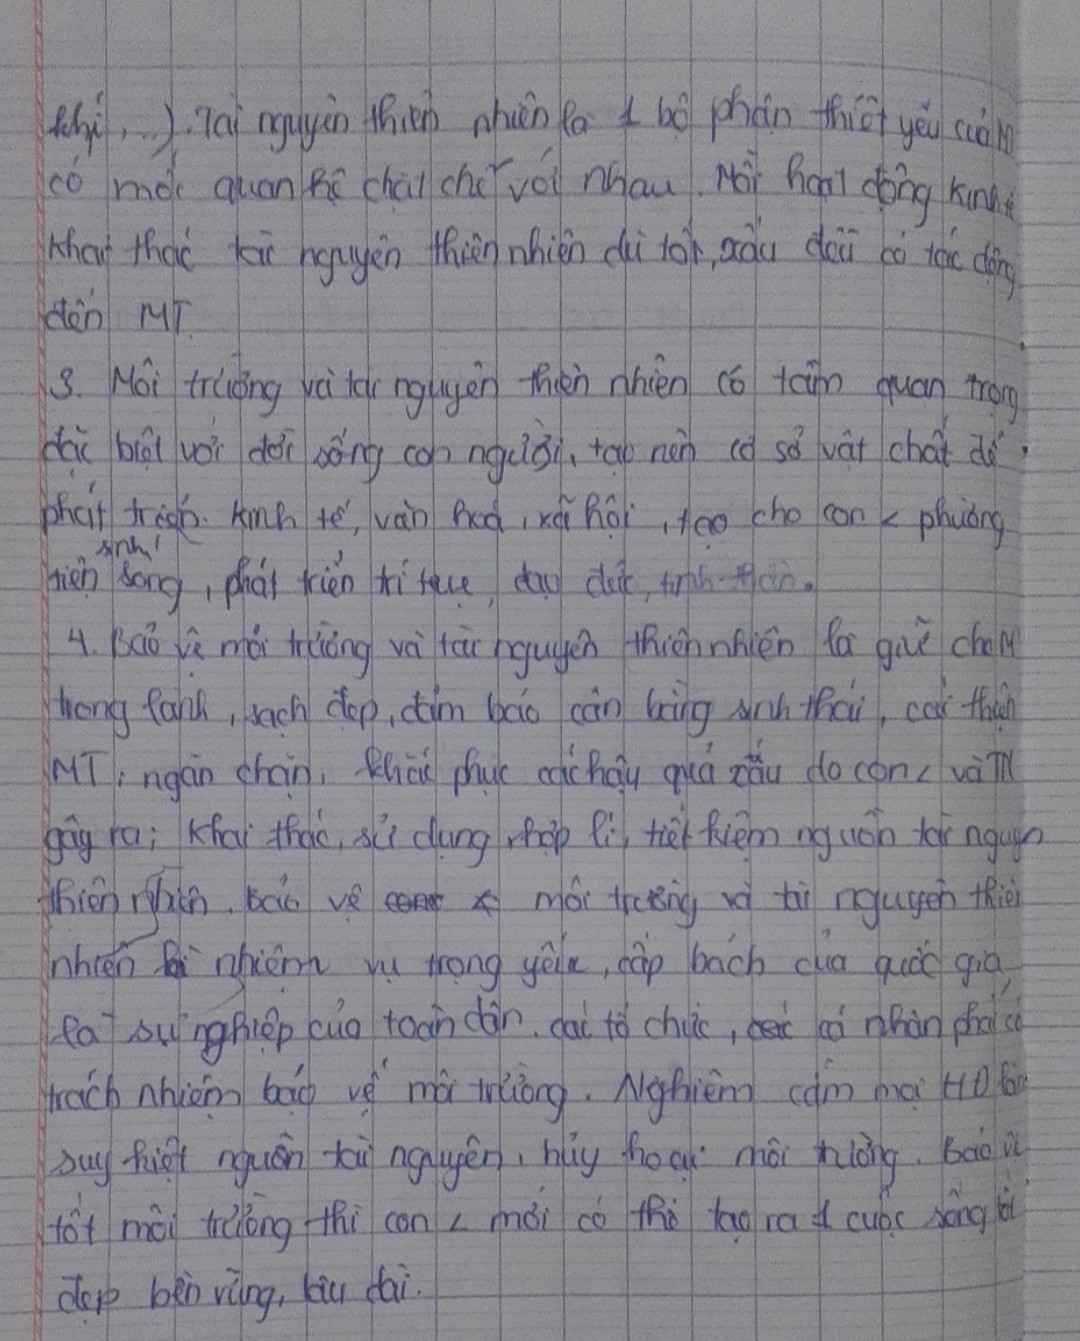 khí,...). Tài nguyên thiên nhiên là 1 bộ phận thiết yếu của M
có mối quan hệ chặt chẽ với nhau. Mỗi hoạt động kinh tế
khai thác tài nguyên thiên nhiên dù tốt, xấu đều có tác động
đến MT.
3. Môi trường và tài nguyên thiên nhiên có tầm quan trọng
đặc biệt với đời sống con người, tạo nên cơ sở vật chất để
phát triển kinh tế, văn hoá, xã hội, tạo cho con < phương
tiện sinh sống, phát triển trí tuệ, đạo đức, tinh thần.
4. Bảo vệ môi trường và tài nguyên thiên nhiên là giữ cho M
trong lành, sạch đẹp, đảm bảo cân bằng sinh thái, cải thiện
MT; ngăn chặn, khắc phục các hậu quả xấu do con < và TN
gây ra; khai thác, sử dụng hợp lí, tiết kiệm nguồn tài nguyên
thiên nhiên. bảo vệ môi trường và tài nguyên thiên
nhiên là nhiệm vụ trọng yếu, cấp bách của quốc gia,
là sự nghiệp của toàn dân. các tổ chức, cá nhân phải có
trách nhiệm bảo vệ môi trường. Nghiêm cấm mọi HĐ làm
suy kiệt nguồn tài nguyên, hủy hoại môi trường. Bảo vệ
tốt môi trường thì con < mới có thể tạo ra 1 cuộc sống tốt
đẹp bền vững, lâu dài.